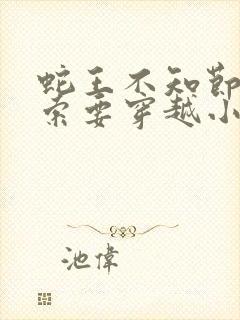 蛇王不知節
索要穿越小
池偉